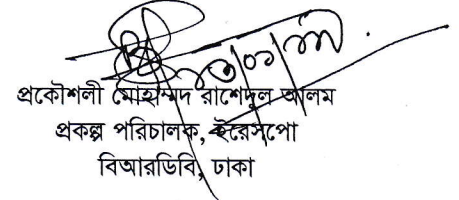 প্রকৌশলী মোহাম্মদ রাশেদুল আলম
প্রকল্প পরিচালক, ইরেসপো
বিআরডিবি, ঢাকা